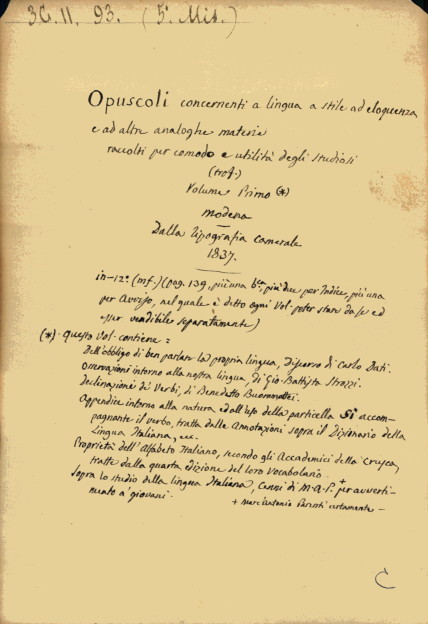 36.11.93. (5. Mis.)
Opuscoli concernenti a lingua a stile ad eloquenza
e ad altre analoghe materie
raccolti per comodo e utilità degli studiosi
Volume Primo (*)
Modena
Dalla Tipografia Camerale
1837.
in-12. (pag. 139, più una più due per Indice, più una
per Avviso, nel quale è detto ogni Vol. poter stare da se ed
esser vendibile separatamente)
(*) Questo Vol. contiene:
Dell'obbligo di ben parlare la propria lingua, discorso di Carlo Dati.
Osservazioni intorno alla nostra lingua, di Gio. Battista Strozzi.
Declinazione de' Verbi, di Benedetto Buommattei.
Appendice intorno alla natura e all'uso della particella Si accom-
pagnante il verbo, tratta dalle Annotazioni sopra il Dizionario della
Lingua Italiana, ecc.
Proprietà dell'Alfabeto Italiano, secondo gli Accademici della Crusca,
tratte dalla quarta edizione del loro Vocabolario.
Sopra lo studio della lingua Italiana, Cenni di M.A.P.+ per avverti-
mento a' giovani.
+ Marc'Antonio Parenti certamente -
C